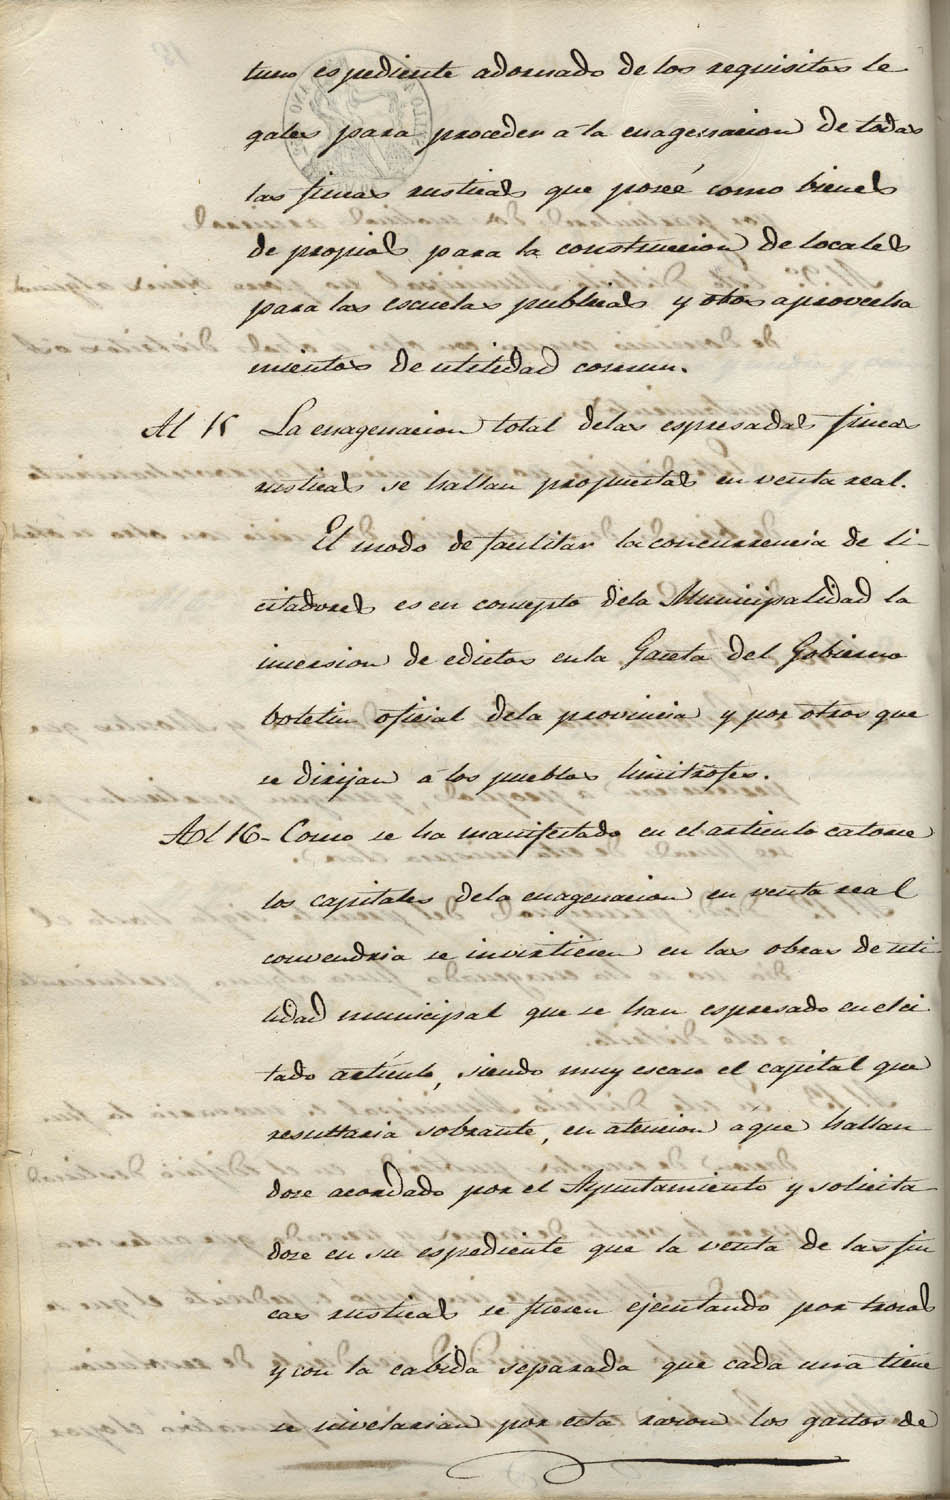 tuno espediente adornado de los requisitos le
gales para proceder á la enagenacion de todas
las fincas rusticas que poseé como bienes
de propios para la construccion de locales
para las escuelas publicas y otros aprovecha
mientos de utilidad comun.
Al 15 La enagenacion total delas espresadas fincas
rusticas se hallan propuestas en venta real.
El modo de facilitar la concurrencia de li-
citadores es en concepto dela Municipalidad la
incersion de edictos enla Gaceta del Gobierno
boletin oficial dela provincia y por otros que
se dirijan á los pueblos limitrofes.
Al 16 - Como se ha manifestado en el articulo catorce
los capitales dela enagenacion en venta real
convendria se invirtiesen en las obras de uti
lidad municipal que se han espresado en el ci
tado artículo, siendo muy escaso el capital que
resultaria sobrante, en atencion á que hallan
dose acordado por el Ayuntamiento y solicita
dose en su espediente que la venta de las fin
cas rusticas se fuesen ejecutando por trozos
y con la cabida separada que cada una tiene
se nivelarian por esta razon los gastos de